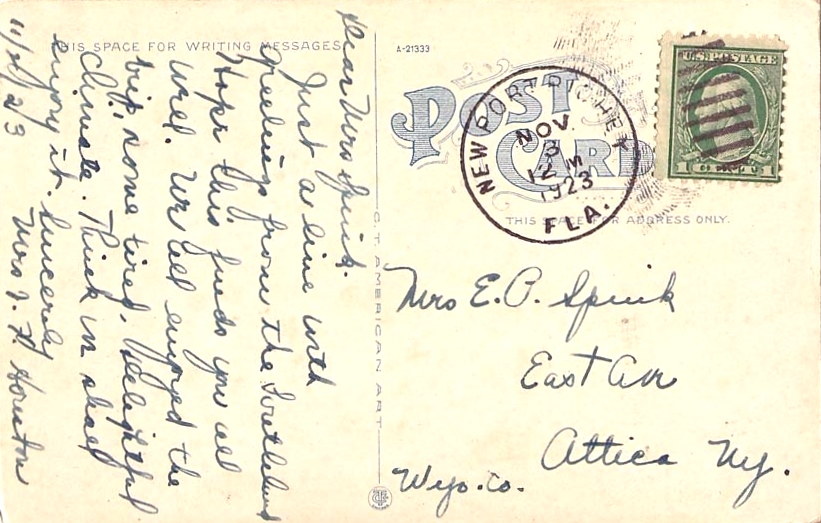 THIS SPACE FOR WRITING MESSAGES
Dear Mrs Spink.
Just a line with
greetings from the Southland
Hope this finds you all
well. We all enjoyed the
trip, some tired. Delightful
climate. Think we shall
enjoy it. Sincerely
Mrs J. H. Houston
11/2/23
C.T. AMERICAN ART
A-21333
POST CARD
NEW PORT RICHEY
NOV
3
12 M
1923
FLA.
U.S. POSTAGE
1 1
THIS SPACE FOR ADDRESS ONLY.
Mrs E. P. Spink
East Ave
Attica Ny.
Wyo. Co.